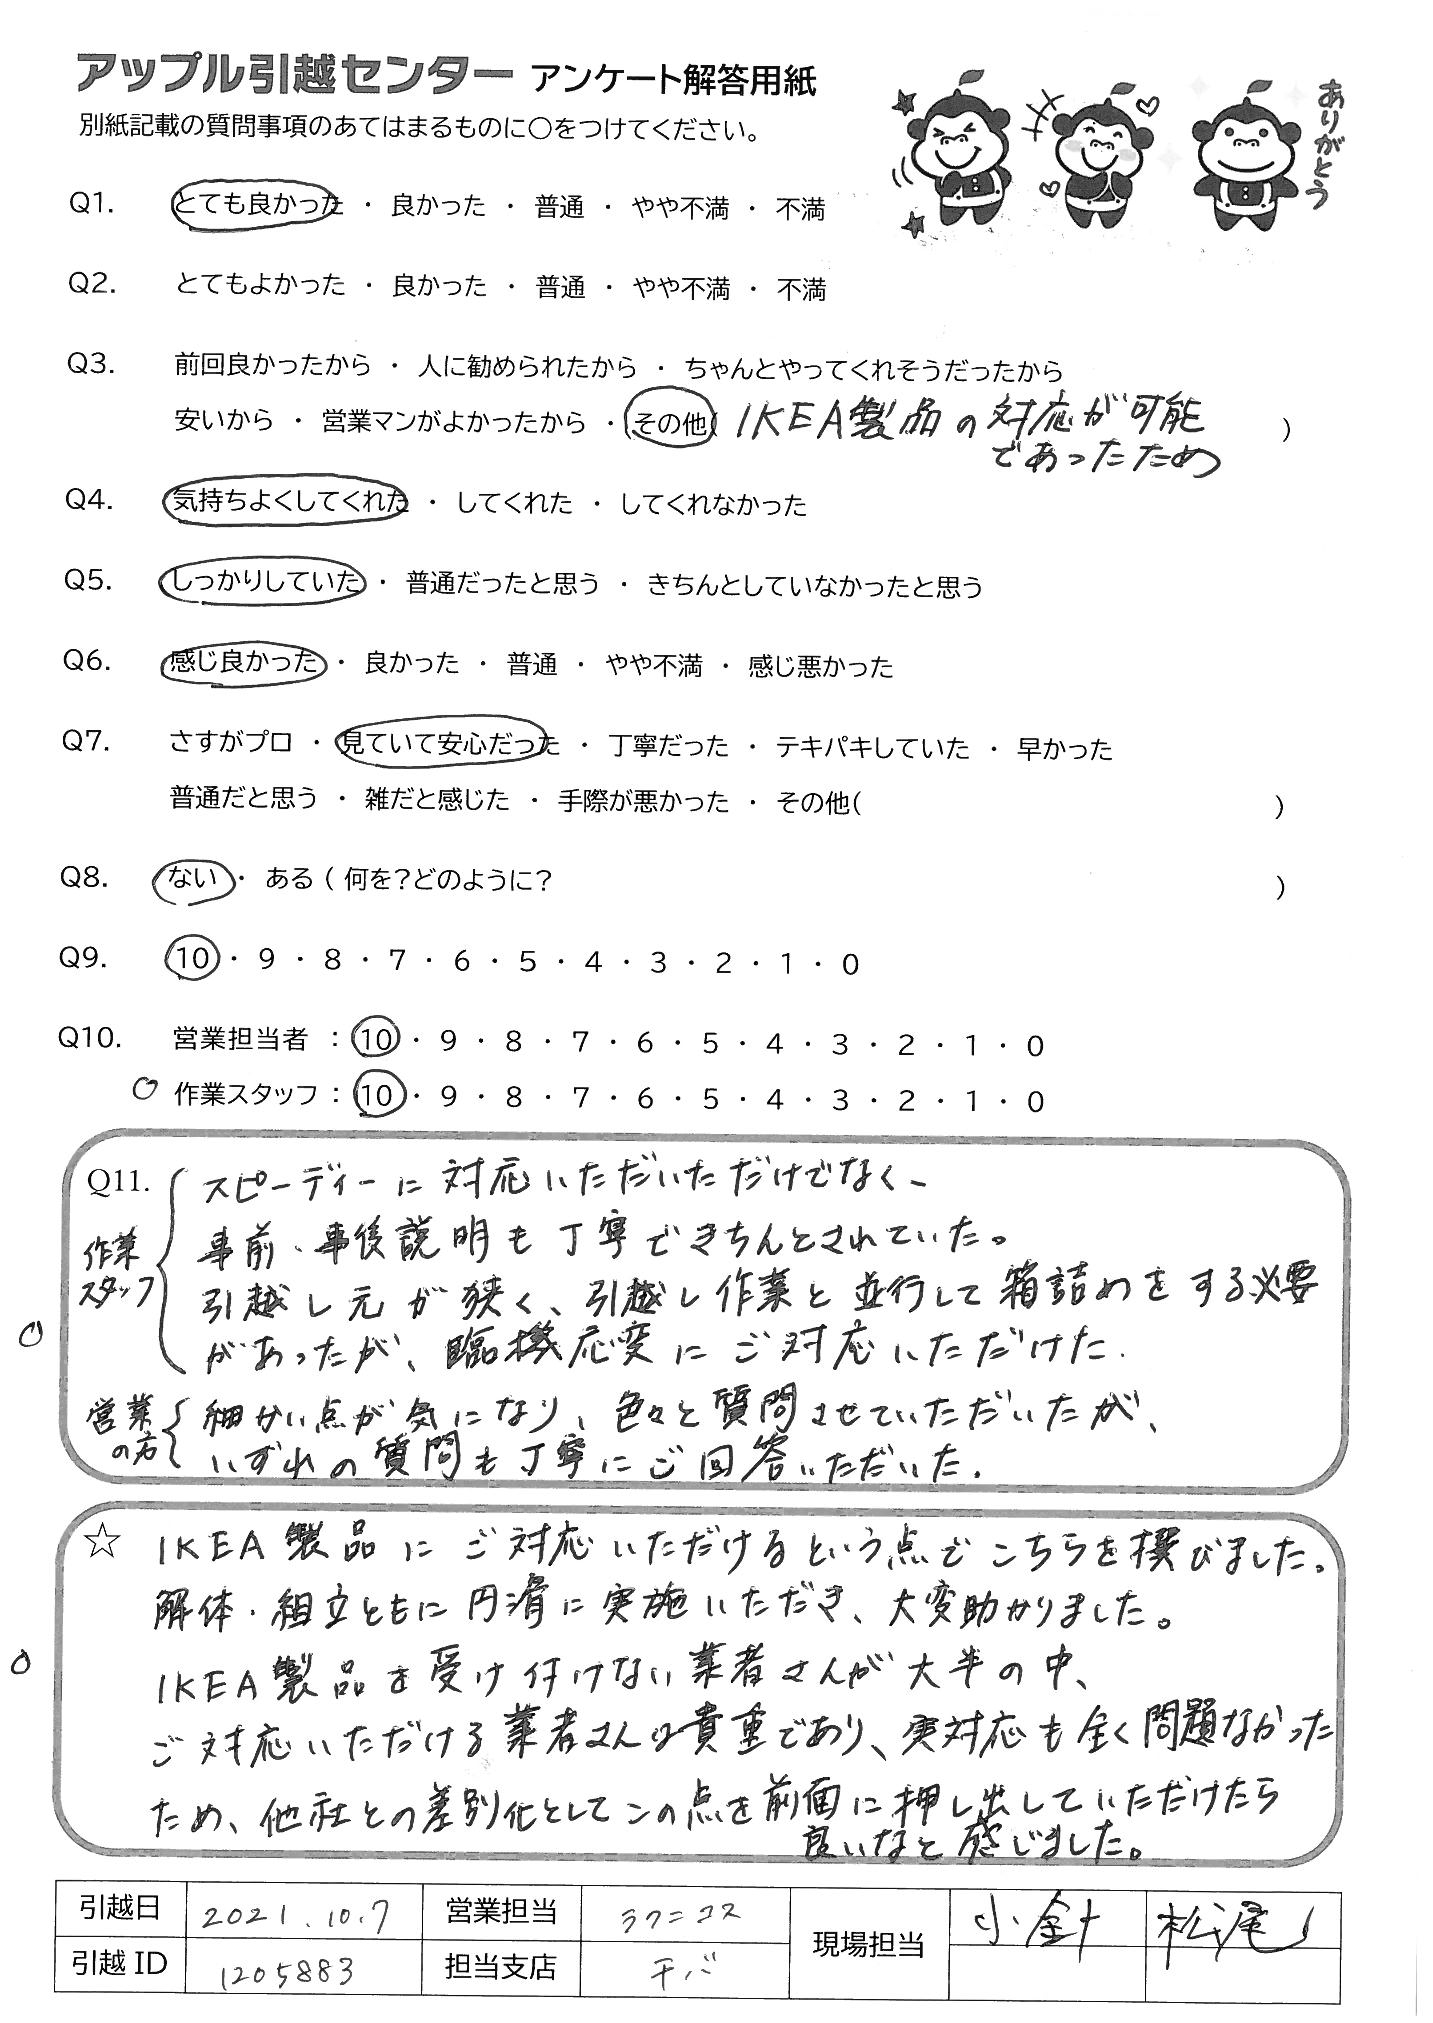 アップル引越センター アンケート解答用紙
ありがとう
別紙記載の質問事項のあてはまるものに○をつけてください。
Q1. とても良かった ・ 良かった ・ 普通 ・ やや不満 ・ 不満
Q2. とてもよかった ・ 良かった ・ 普通 ・ やや不満 ・ 不満
Q3. 前回良かったから ・ 人に勧められたから ・ ちゃんとやってくれそうだったから
安いから ・ 営業マンがよかったから ・ その他( IKEA製品の対応が可能 )
であったため
Q4. 気持ちよくしてくれた ・ してくれた ・ してくれなかった
Q5. しっかりしていた ・ 普通だったと思う ・ きちんとしていなかったと思う
Q6. 感じ良かった ・ 良かった ・ 普通 ・ やや不満 ・ 感じ悪かった
Q7. さすがプロ ・ 見ていて安心だった ・ 丁寧だった ・ テキパキしていた ・ 早かった
普通だと思う ・ 雑だと感じた ・ 手際が悪かった ・ その他( )
Q8. ない ・ ある ( 何を?どのように? )
Q9. 10 ・ 9 ・ 8 ・ 7 ・ 6 ・ 5 ・ 4 ・ 3 ・ 2 ・ 1 ・ 0
Q10. 営業担当者 : 10 ・ 9 ・ 8 ・ 7 ・ 6 ・ 5 ・ 4 ・ 3 ・ 2 ・ 1 ・ 0
作業スタッフ : 10 ・ 9 ・ 8 ・ 7 ・ 6 ・ 5 ・ 4 ・ 3 ・ 2 ・ 1 ・ 0
Q11. スピーディーに対応いただいただけでなく、
作業 事前・事後説明も丁寧できちんとされていた。
スタッフ 引越し元が狭く、引越し作業と並行して箱詰めをする必要
があったが、臨機応変にご対応いただけた.
営業 細かい点が気になり、色々と質問させていただいたが、
の方 いずれの質問も丁寧にご回答いただいた.
☆ IKEA製品にご対応いただけるという点でこちらを撰びました。
解体・組立ともに円滑に実施いただき、大変助かりました。
IKEA製品を受け付けない業者さんが大半の中、
ご対応いただける業者さんは貴重であり、実対応も全く問題なかった
ため、他社との差別化としてこの点を前面に押し出していただけたら
良いなと感じました。
引越日 2021.10.7 営業担当 ラクニコス 現場担当 小金十 松尾
引越ID 1205883 担当支店 千バ